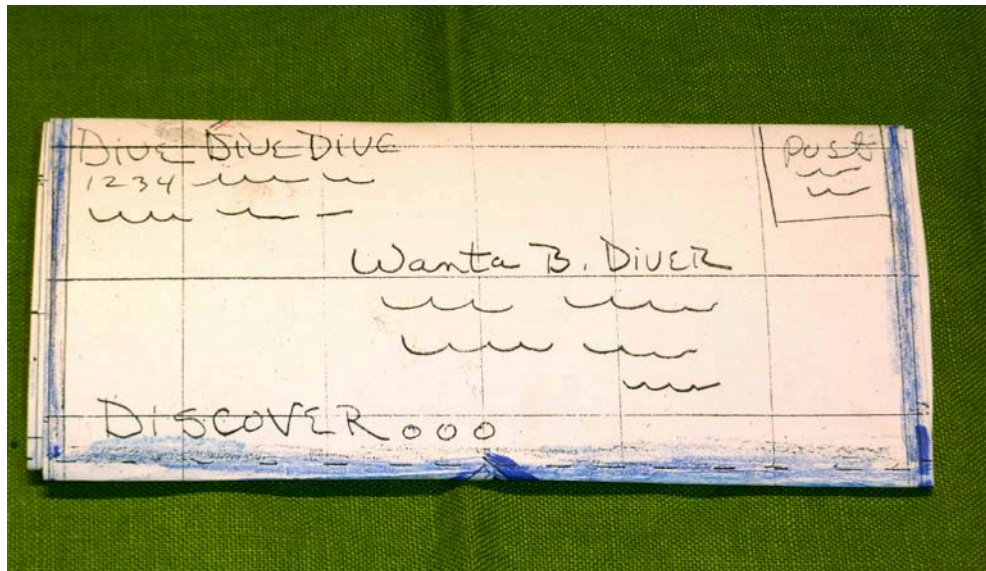 DIVE DIVE DIVE
1234
Post
Wanta B. DIVER
DISCOVER...